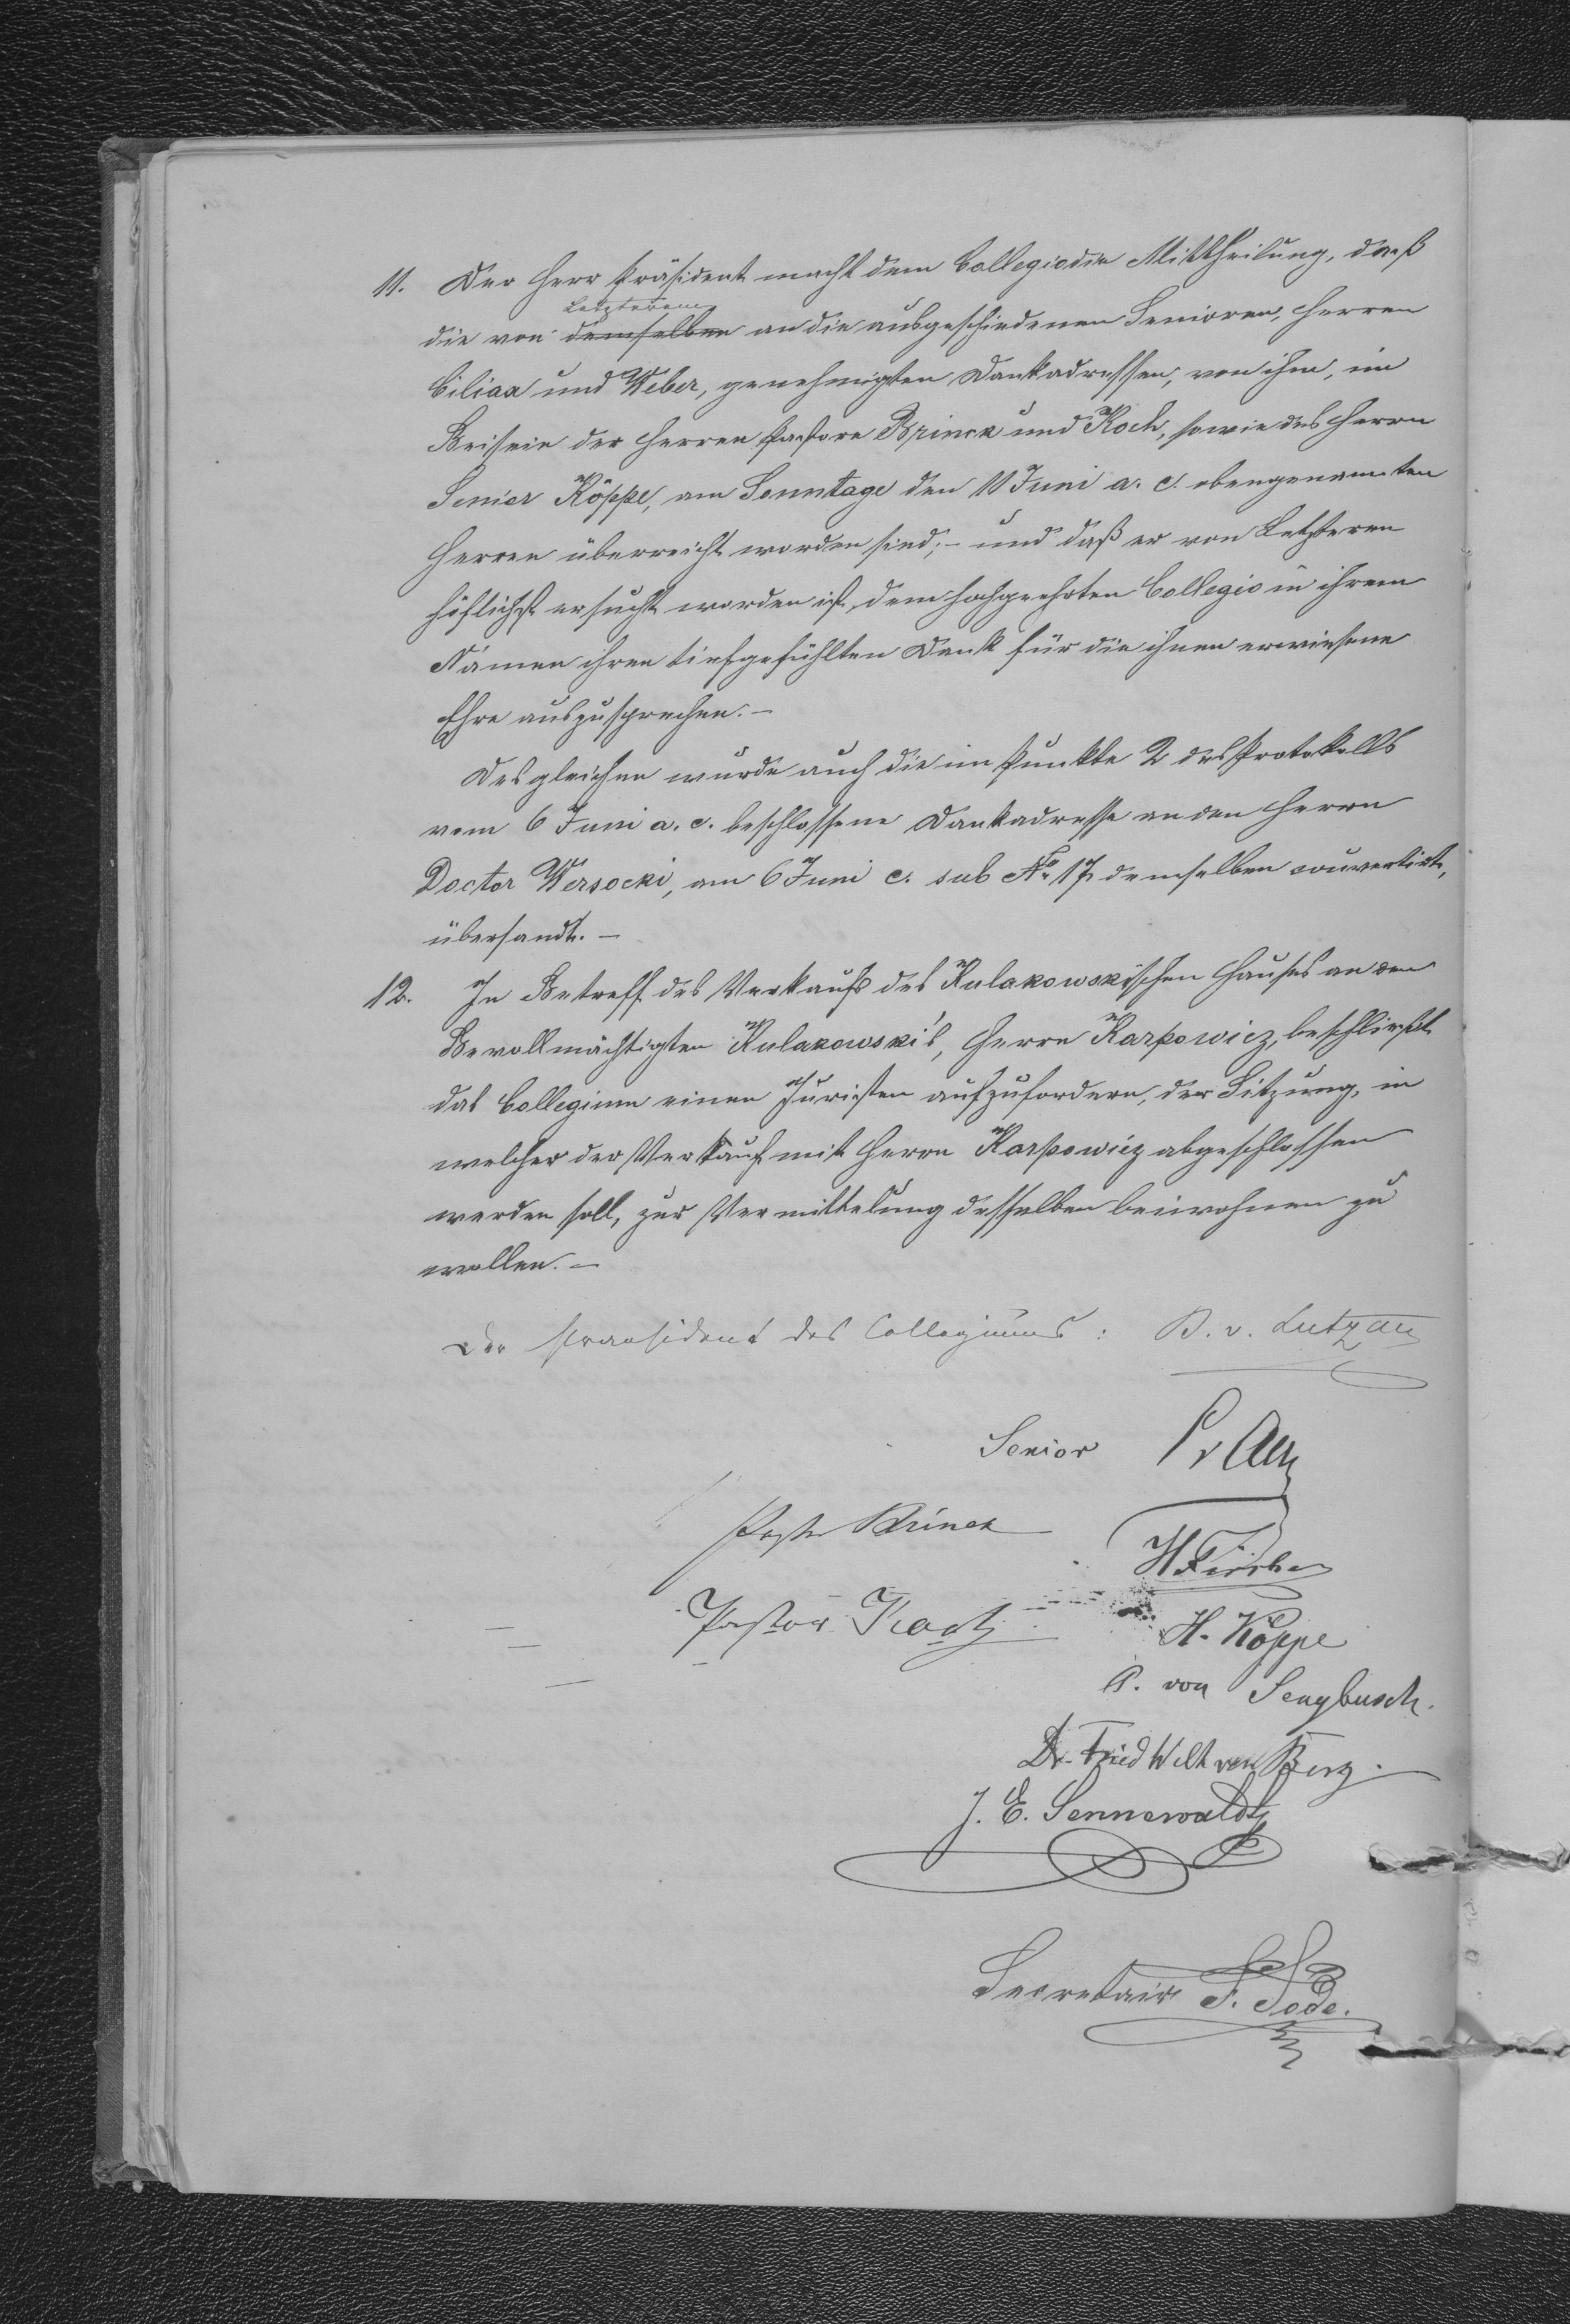 11. Der Herr Präsident macht dem Collegio die Mittheilung, daß
Letzterem
die von demselben an die ausgeschiedenen Senioren, Herren
Ciliax und Weber, genehmigten Dankadressen, von ihm, im
Beisein der Herren Pastore Brinck und Koch, sowie des Herrn
Senior Köppe, am Sonntage den 11 Juni a. c. obengenannten
Herren überreicht worden sind; – und daß er von Letzteren
höflichst ersucht worden ist, dem hochgeehrten Collegio in ihrem
Namen ihren tiefgefühlten Dank für die ihnen erwiesene
Ehre auszusprechen. –
Desgleichen wurde auch die im Punkte 2 des Protokolls
vom 6 Juni a. c. beschlossene Dankadresse an den Herrn
Doctor Wersocki, am 6 Juni c. sub No 17 demselben couvertirt,
übersandt. –
12. In Betreff des Verkaufs des Kulakowskischen Hauses an den
Bevollmächtigten Kulakowski's, Herrn Karpowicz, beschließt
das Collegium einen Juristen aufzufordern, der Sitzung, in
welcher der Verkauf mit Herrn Karpowicz abgeschlossen
werden soll, zur Vermittelung desselben beiwohnen zu
wollen. –
Der Praesident des Collegiums: B. v. Lutzau
Senior
Pastor Brinck
Pastor Koch
H. Köppe
P. von Sengbusch.
Dr. Fried Wilh von Berg.
J. E. Sennewaldt
Secretair F. Sode.